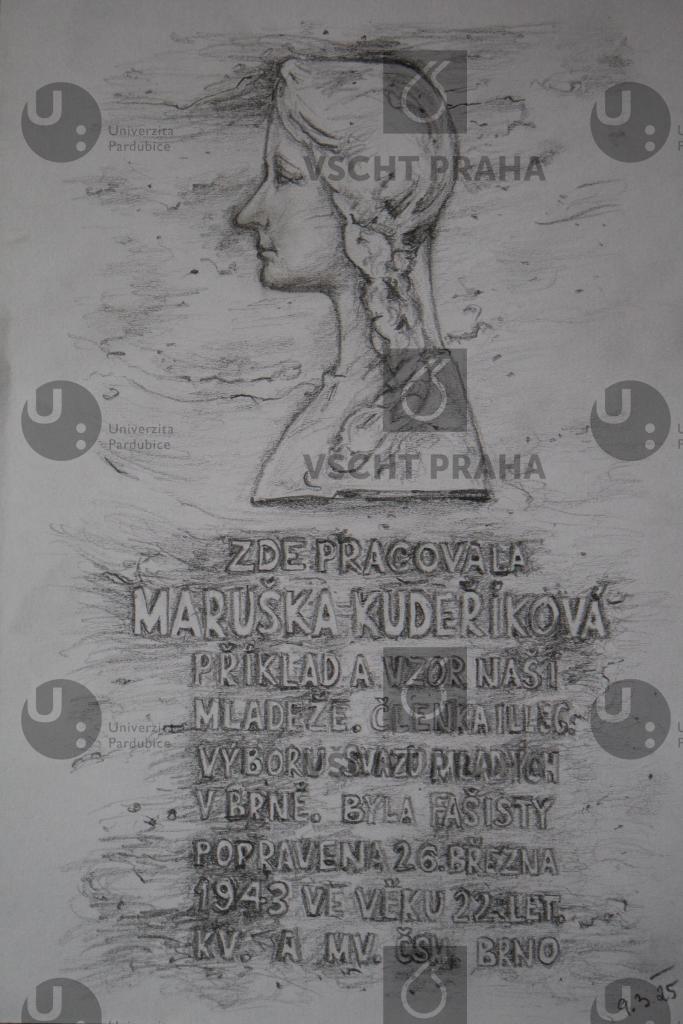 ZDE PRACOVALA
MARUŠKA KUDEŘÍKOVÁ
PŘÍKLAD A VZOR NAŠÍ
MLÁDEŽE. ČLENKA ILLEG.
VÝBORU SVAZU MLADÝCH
V BRNĚ. BYLA FAŠISTY
POPRAVENA 26. BŘEZNA
1943 VE VĚKU 22. LET.
KV. A MV. ČSM. BRNO
9.3 25
Univerzita
Pardubice
VŠCHT PRAHA
Univerzita
Pardubice
VŠCHT PRAHA
Univerzita
Pardubice